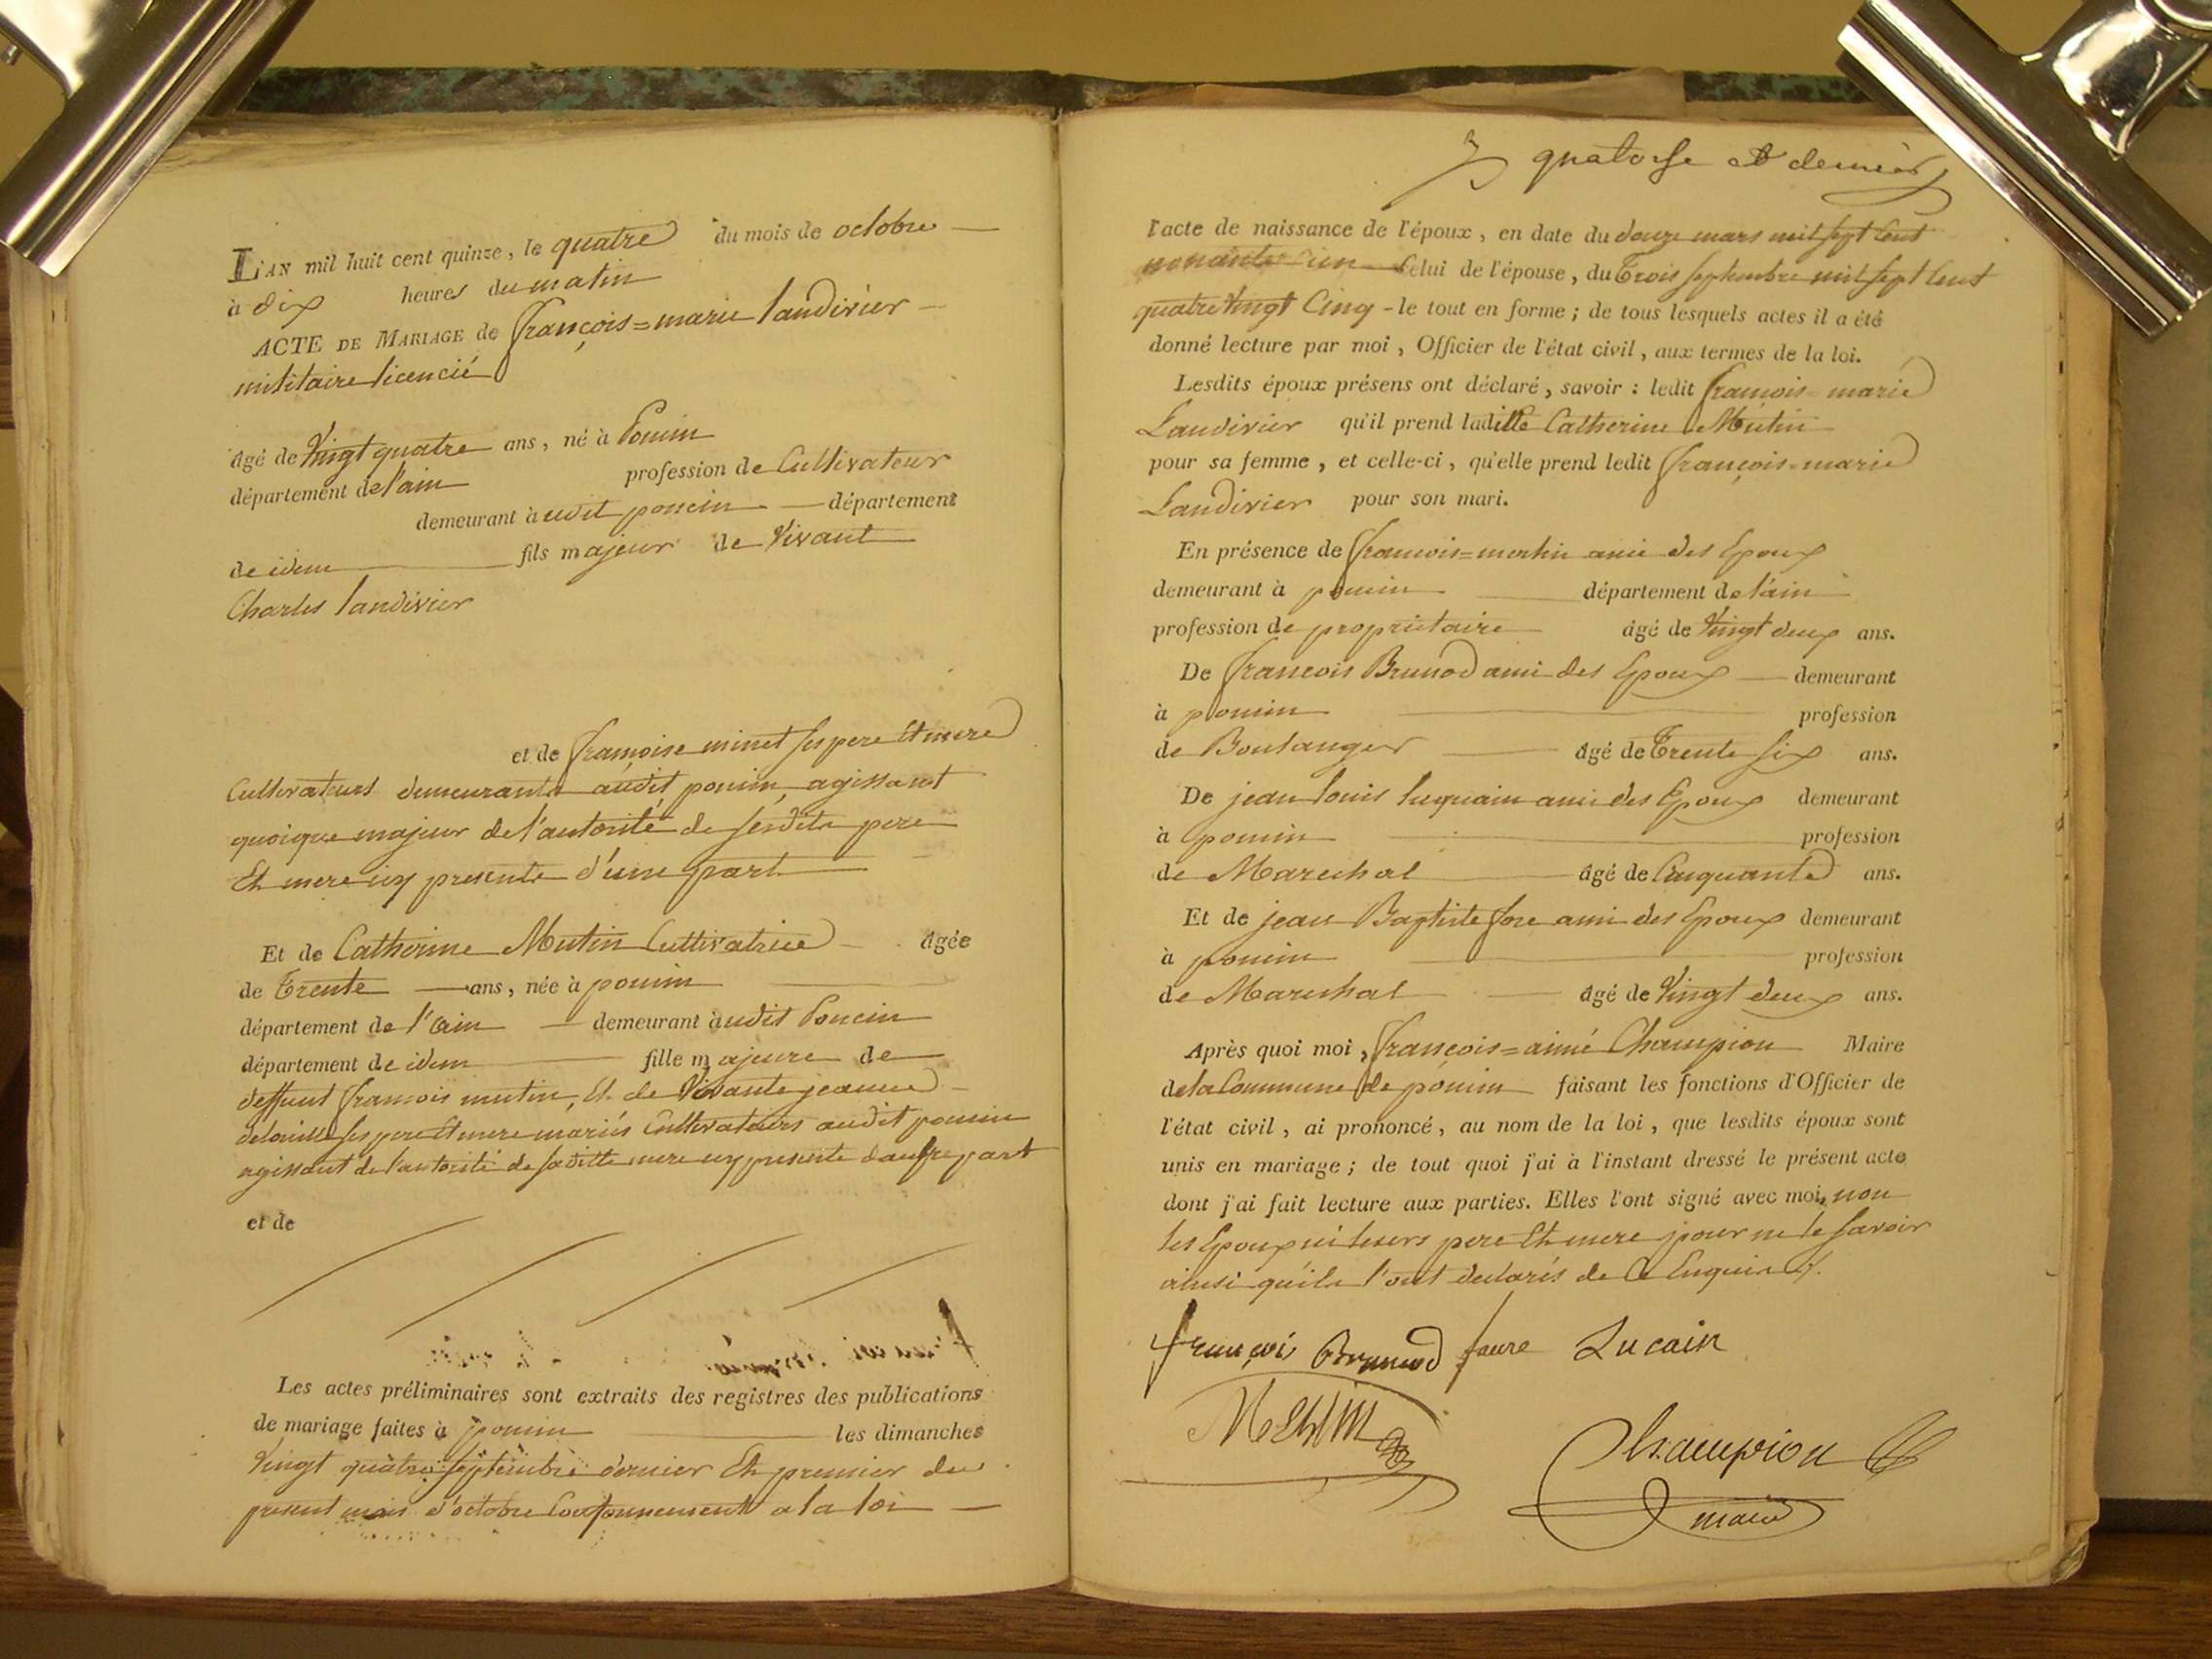 L'AN mil huit cent quinze, le quatre du mois de octobre
à dix heures du matin
ACTE DE MARIAGE de françois=marie landivier
militaire licencié
âgé de Vingt quatre ans, né à Poncin
département de l'ain profession de Cultivateur
demeurant audit poncin département
de idem fils majeur de Vivant
Charles landivier
et de françoise minet ses pere Et mere
Cultivateurs demeurants audit poncin, agissant
quoique majeur de l'autorité de sesdits pere
Et mere icy presents d'une part
Et de Catherine Mutin Cultivatrice âgée
de Trente ans, née à poncin
département de l'ain demeurant audit Poncin
département de idem fille majeure de
deffunt francois mutin, Et de Vivante jeanne
ses pere Et mere mariés Cultivateurs audit poncin
agissant de l'autorité de saditte mere icy presente d'autre part
et de
Les actes préliminaires sont extraits des registres des publications
de mariage faites à poncin les dimanches
Vingt quatre septembre dernier Et premier du
present mois d'octobre Conformement a la loi
quatorse et dernier
l'acte de naissance de l'époux, en date du douze mars mil sept Cent
nonante un Celui de l'épouse, du Trois septembre mil sept Cent
quatre Vingt Cinq - le tout en forme ; de tous lesquels actes il a été
donné lecture par moi, Officier de l'état civil, aux termes de la loi.
Lesdits époux présens ont déclaré, savoir : ledit francois marie
Landivier qu'il prend laditte Catherine Mutin
pour sa femme, et celle-ci, qu'elle prend ledit françois-marie
Landivier pour son mari.
En présence de francois= ami des Epoux
demeurant à poncin département de l'ain
profession de proprietaire âgé de Vingt deux ans.
De francois Brunod ami des Epoux demeurant
à poncin profession
de Boulanger âgé de Trente six ans.
De jean louis luquain ami des Epoux demeurant
à poncin profession
de Marechal âgé de Cinquante ans.
Et de jean Baptiste fore ami des Epoux demeurant
à poncin profession
de Mareshal âgé de Vingt deux ans.
Après quoi moi, francois=aimé Champion Maire
de la Commune de poncin faisant les fonctions d'Officier de
l'état civil, ai prononcé, au nom de la loi, que lesdits époux sont
unis en mariage ; de tout quoi j'ai à l'instant dressé le présent acte
dont j'ai fait lecture aux parties. Elles l'ont signé avec moi, non
les Epoux ni leurs pere Et mere pour ne le savoir
ainsi qu'ils l'ont declarés de Ce Enquis
françois Brunod faure Lucain
Champion
maire